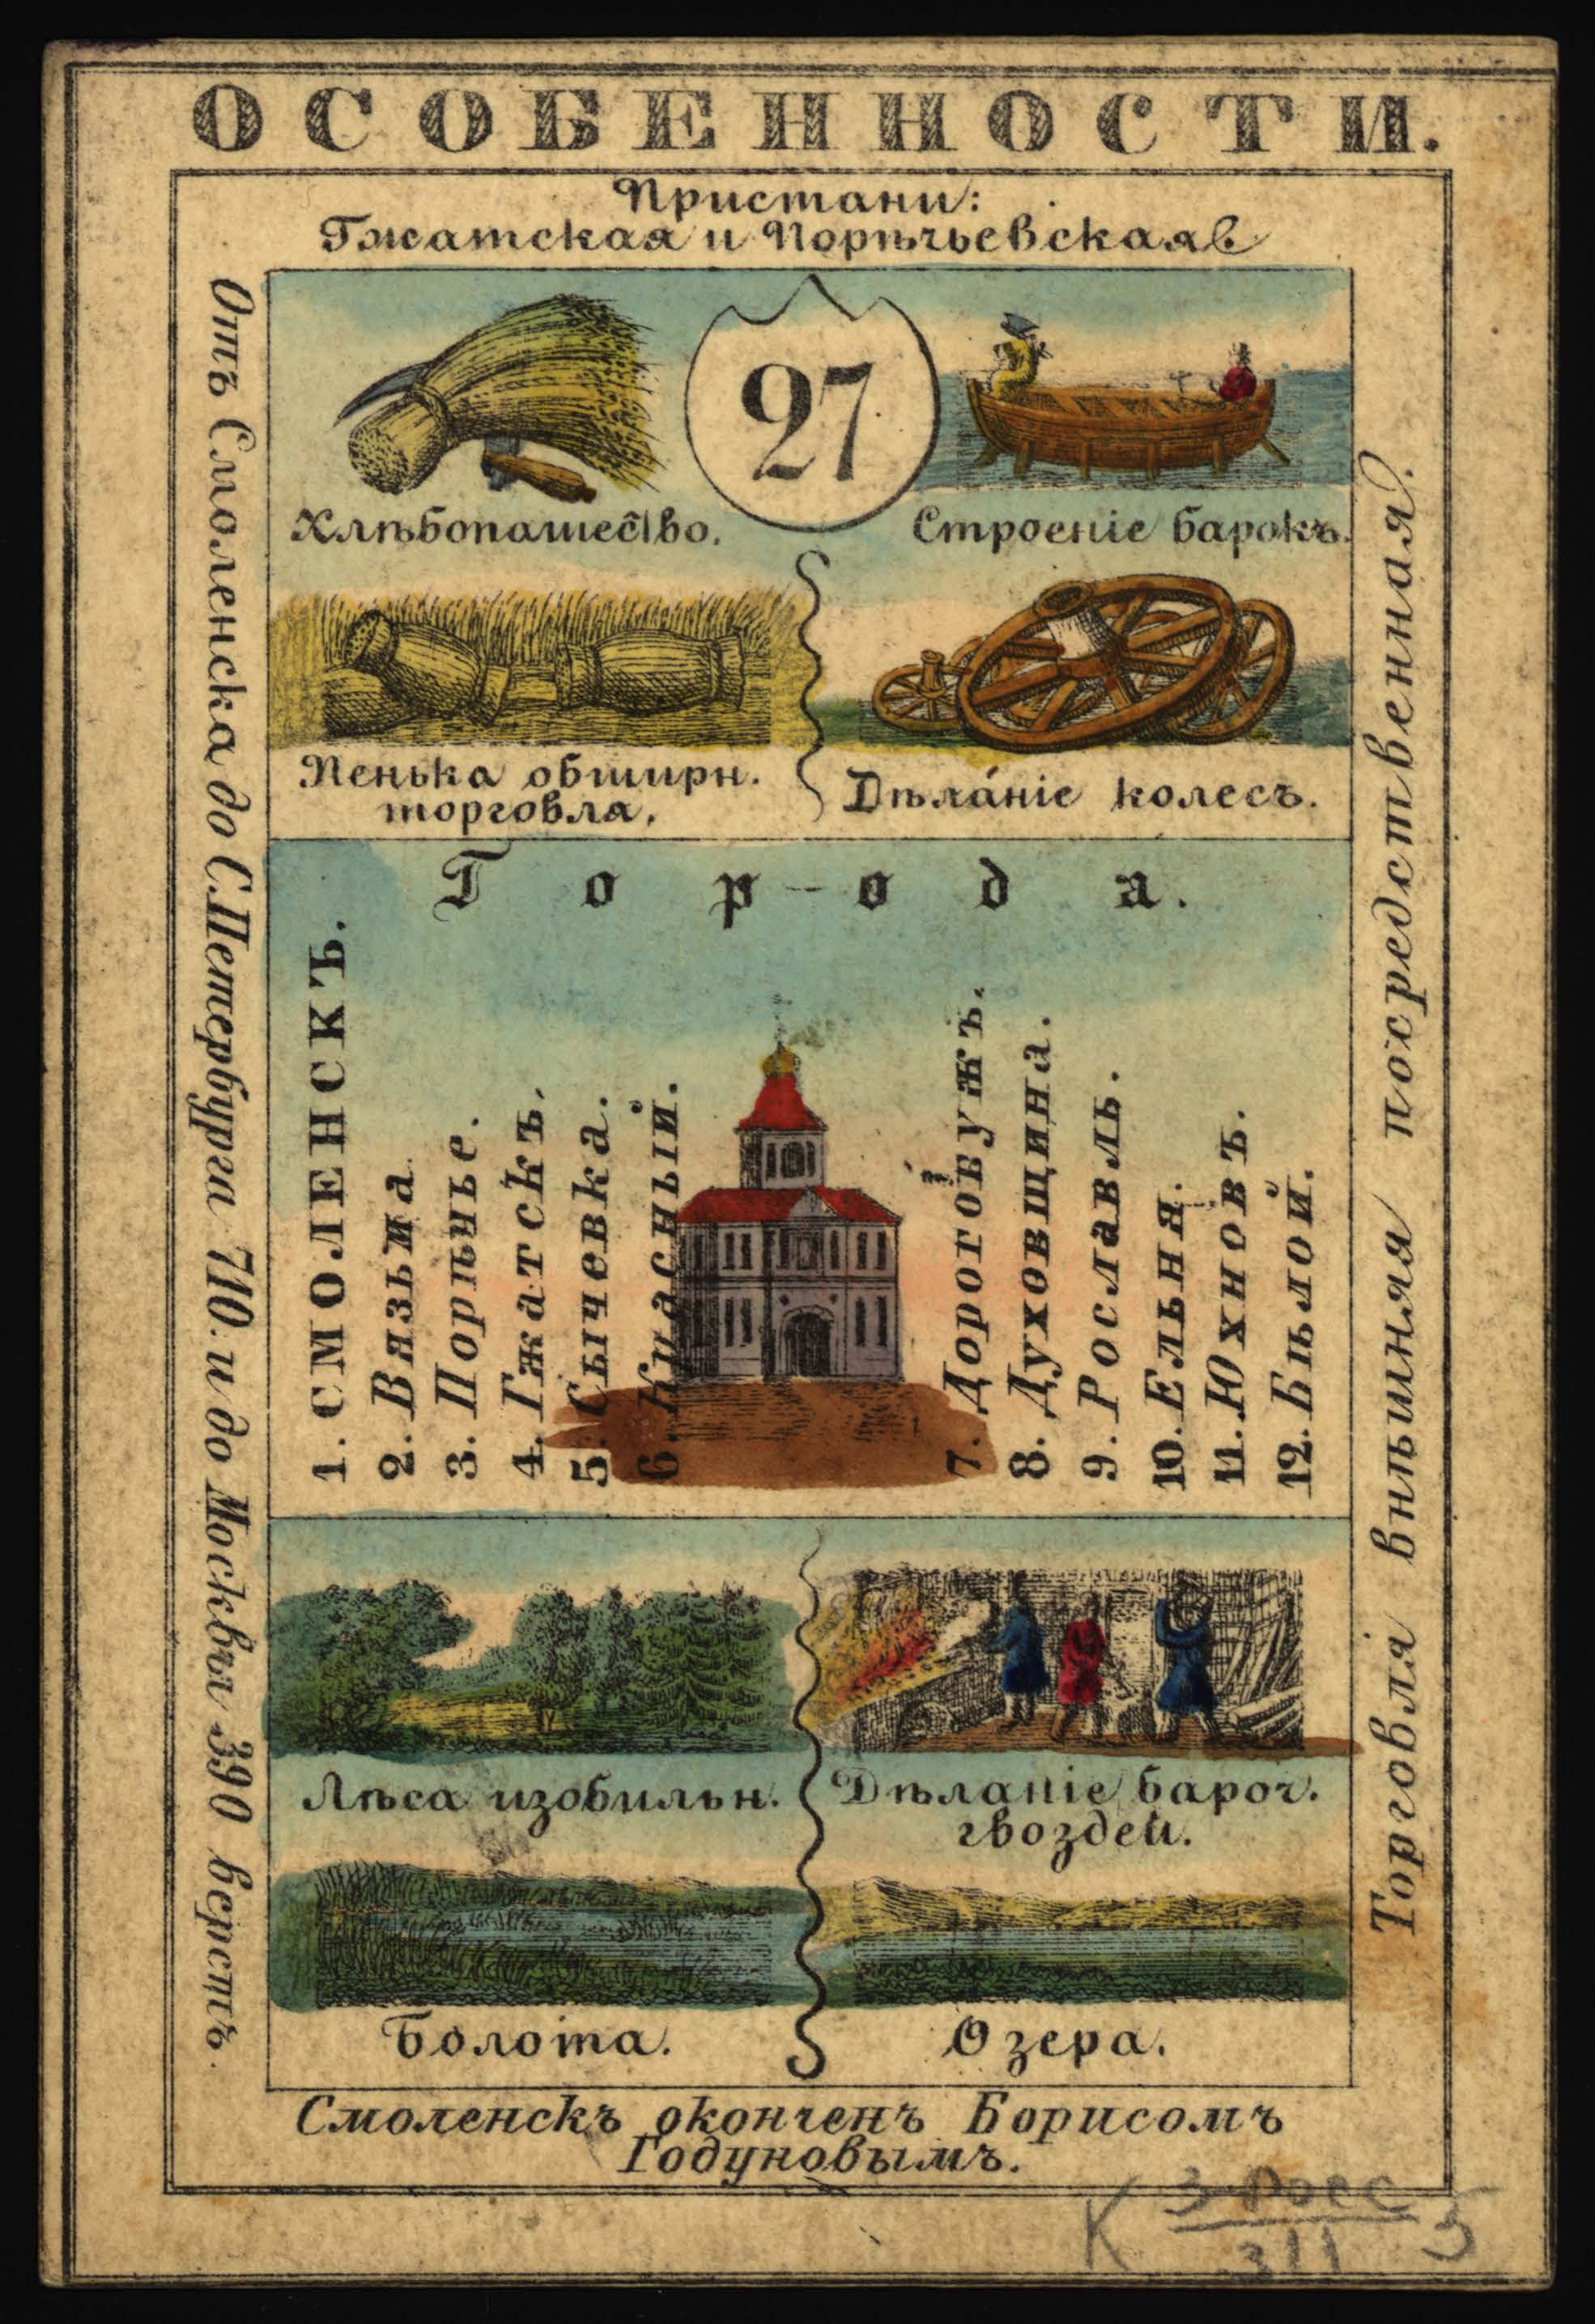 ОСОБЕННОСТИ.
Пристани:
Гжатская и Порѣчьевская
Отъ Смоленска до С.Петербурга 710. и до Москвы 390 верстъ.
27
Хлѣбопашество.
Строеніе барокъ.
Пенька обширн.
торговля.
Дѣланіе колесъ.
Города.
1. СМОЛЕНСКЪ.
2. Вязьма
3. Порѣчье.
4. Гжатскъ.
5. Сычевка.
6. Красный.
7. Дорогобужъ.
8. Духовщина.
9. Рославль.
10. Ельня.
11. Юхновъ.
12. Бѣлой.
Лѣса изобильн.
Дѣланіе бароч.
гвоздей.
Болота.
Озера.
Торговля внѣшняя посредственная.
Смоленскъ оконченъ Борисомъ
Годуновымъ.
К 3-Росс 5
311